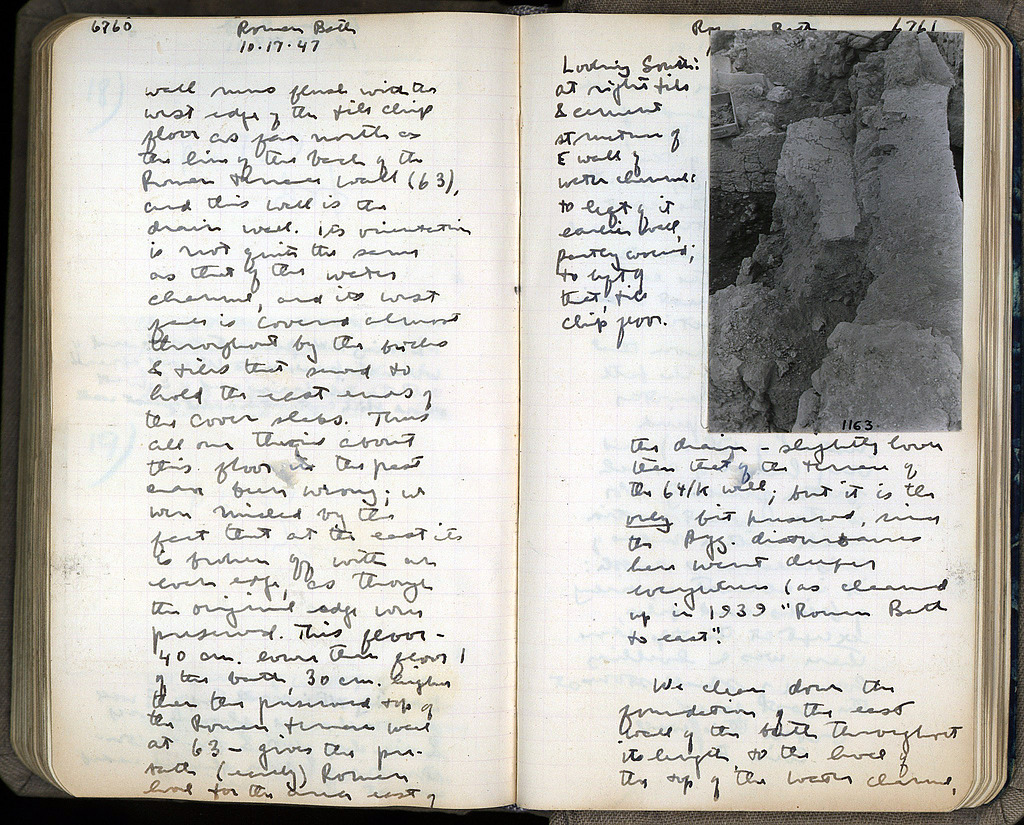 6760
Roman Bath
10.17.47
wall runs flush with the
west edge of the tile chip
floor as far north as
the line of the back of the
Roman terrace wall (63),
and this wall is the
drain wall. Its orientation
is not quite the same
as that of the water
channel, and its west
face is covered almost
throughout by the bricks
& tiles that served to
hold the east ends of
the cover slabs. Thus
all our theories about
this floor in the past
have been wrong; we
were misled by the
fact that at the east it is
is broken off with an
even edge, as though
the original edge were
preserved. This floor -
40 cm. lower than floor 1
of the bath, 30 cm. higher
than the preserved top of
the Roman terrace wall
at 63 - gives the pre-
bath (early) Roman
level for the area east of
6761
Roman Bath
Looking South:
at right tile
& cement
structure of
E wall of
water channel:
to left of it
earlier wall,
partly covered;
to left of
that, tile
chip floor.
1163
the drain - slightly lower
than that of the terrace of
the 64/K wall; but it is the
only bit preserved, since
the Byz. disturbances
here went deeper
everywhere (as cleaned
up in 1939 "Roman Bath
to east".
We clean down the
foundation of the east
wall of the bath throughout
its length, to the level of
the top of the water channel,